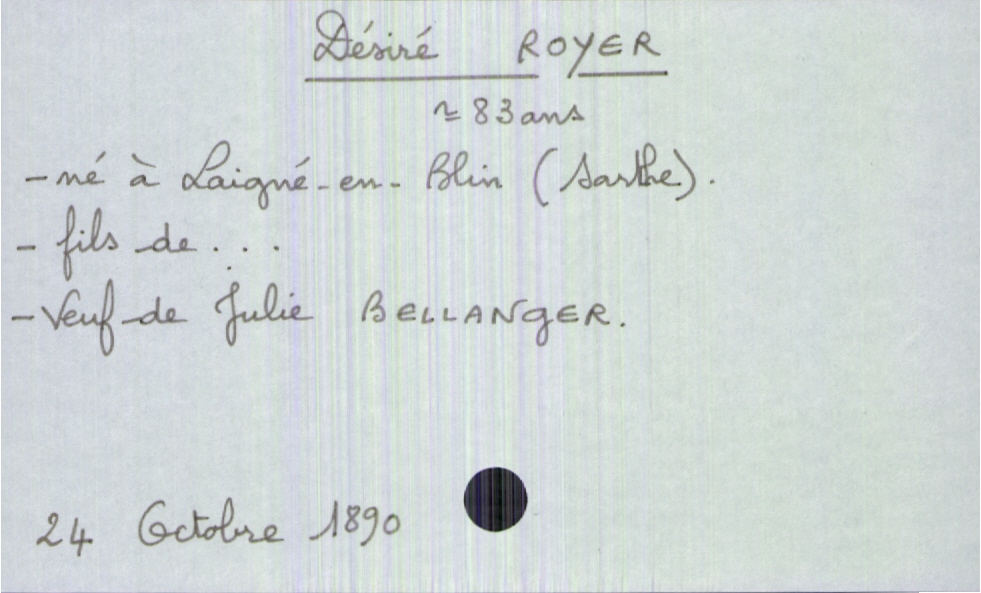 Désiré ROYER
≃ 83 ans
- né à Laigné-en-Blin (Sarthe).
- fils de . . .
- Veuf de Julie BELLANGER.
24 Octobre 1890